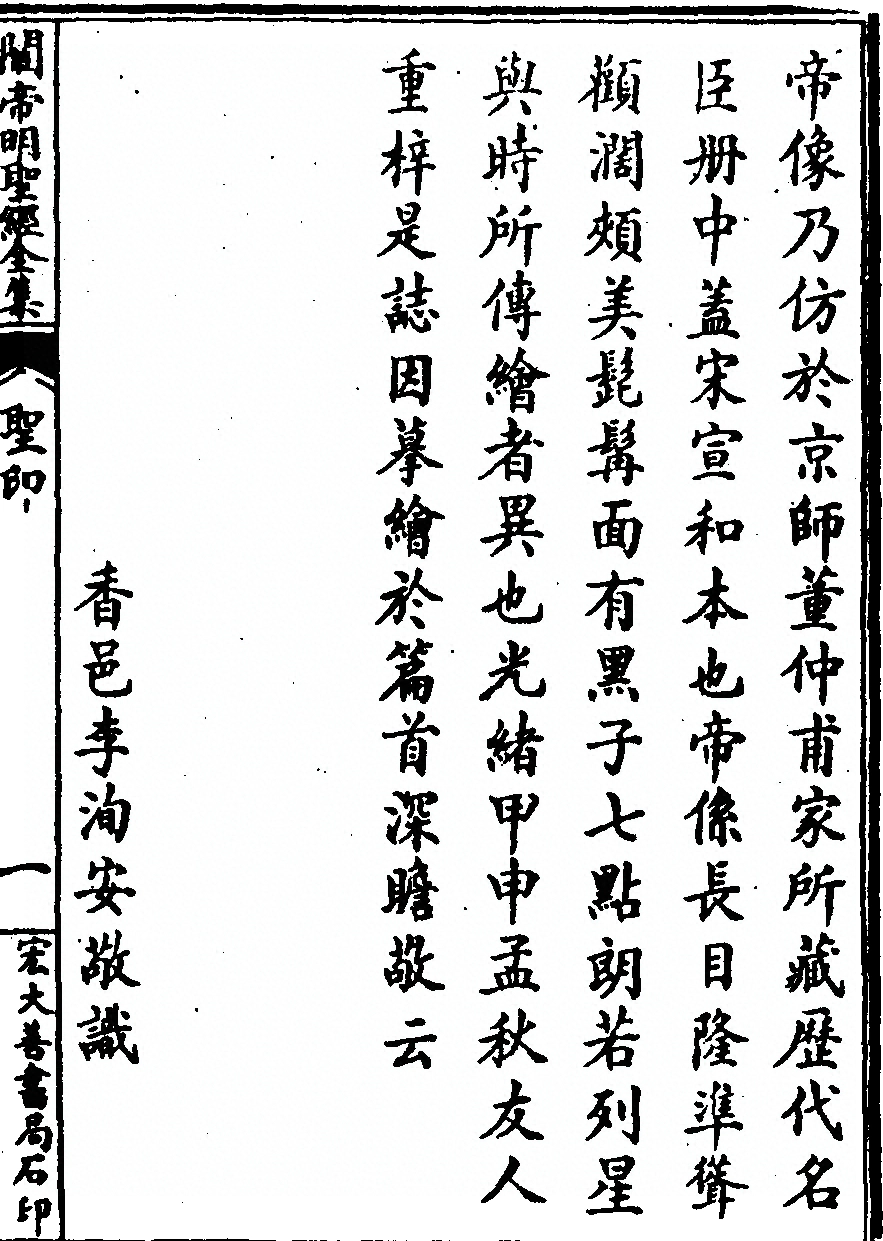 帝像乃仿於京師董仲甫家所藏歷代名
臣册中蓋宋宣和本也帝係長目隆準聳
顴濶頰美髭髯面有黑子七點朗若列星
與時所傳繪者異也光緒甲申孟秋友人
重梓是誌因摹繪於篇首深瞻敬云
香邑李洵安敬識
關帝明聖經全集
聖印
一
宏大善書局石印